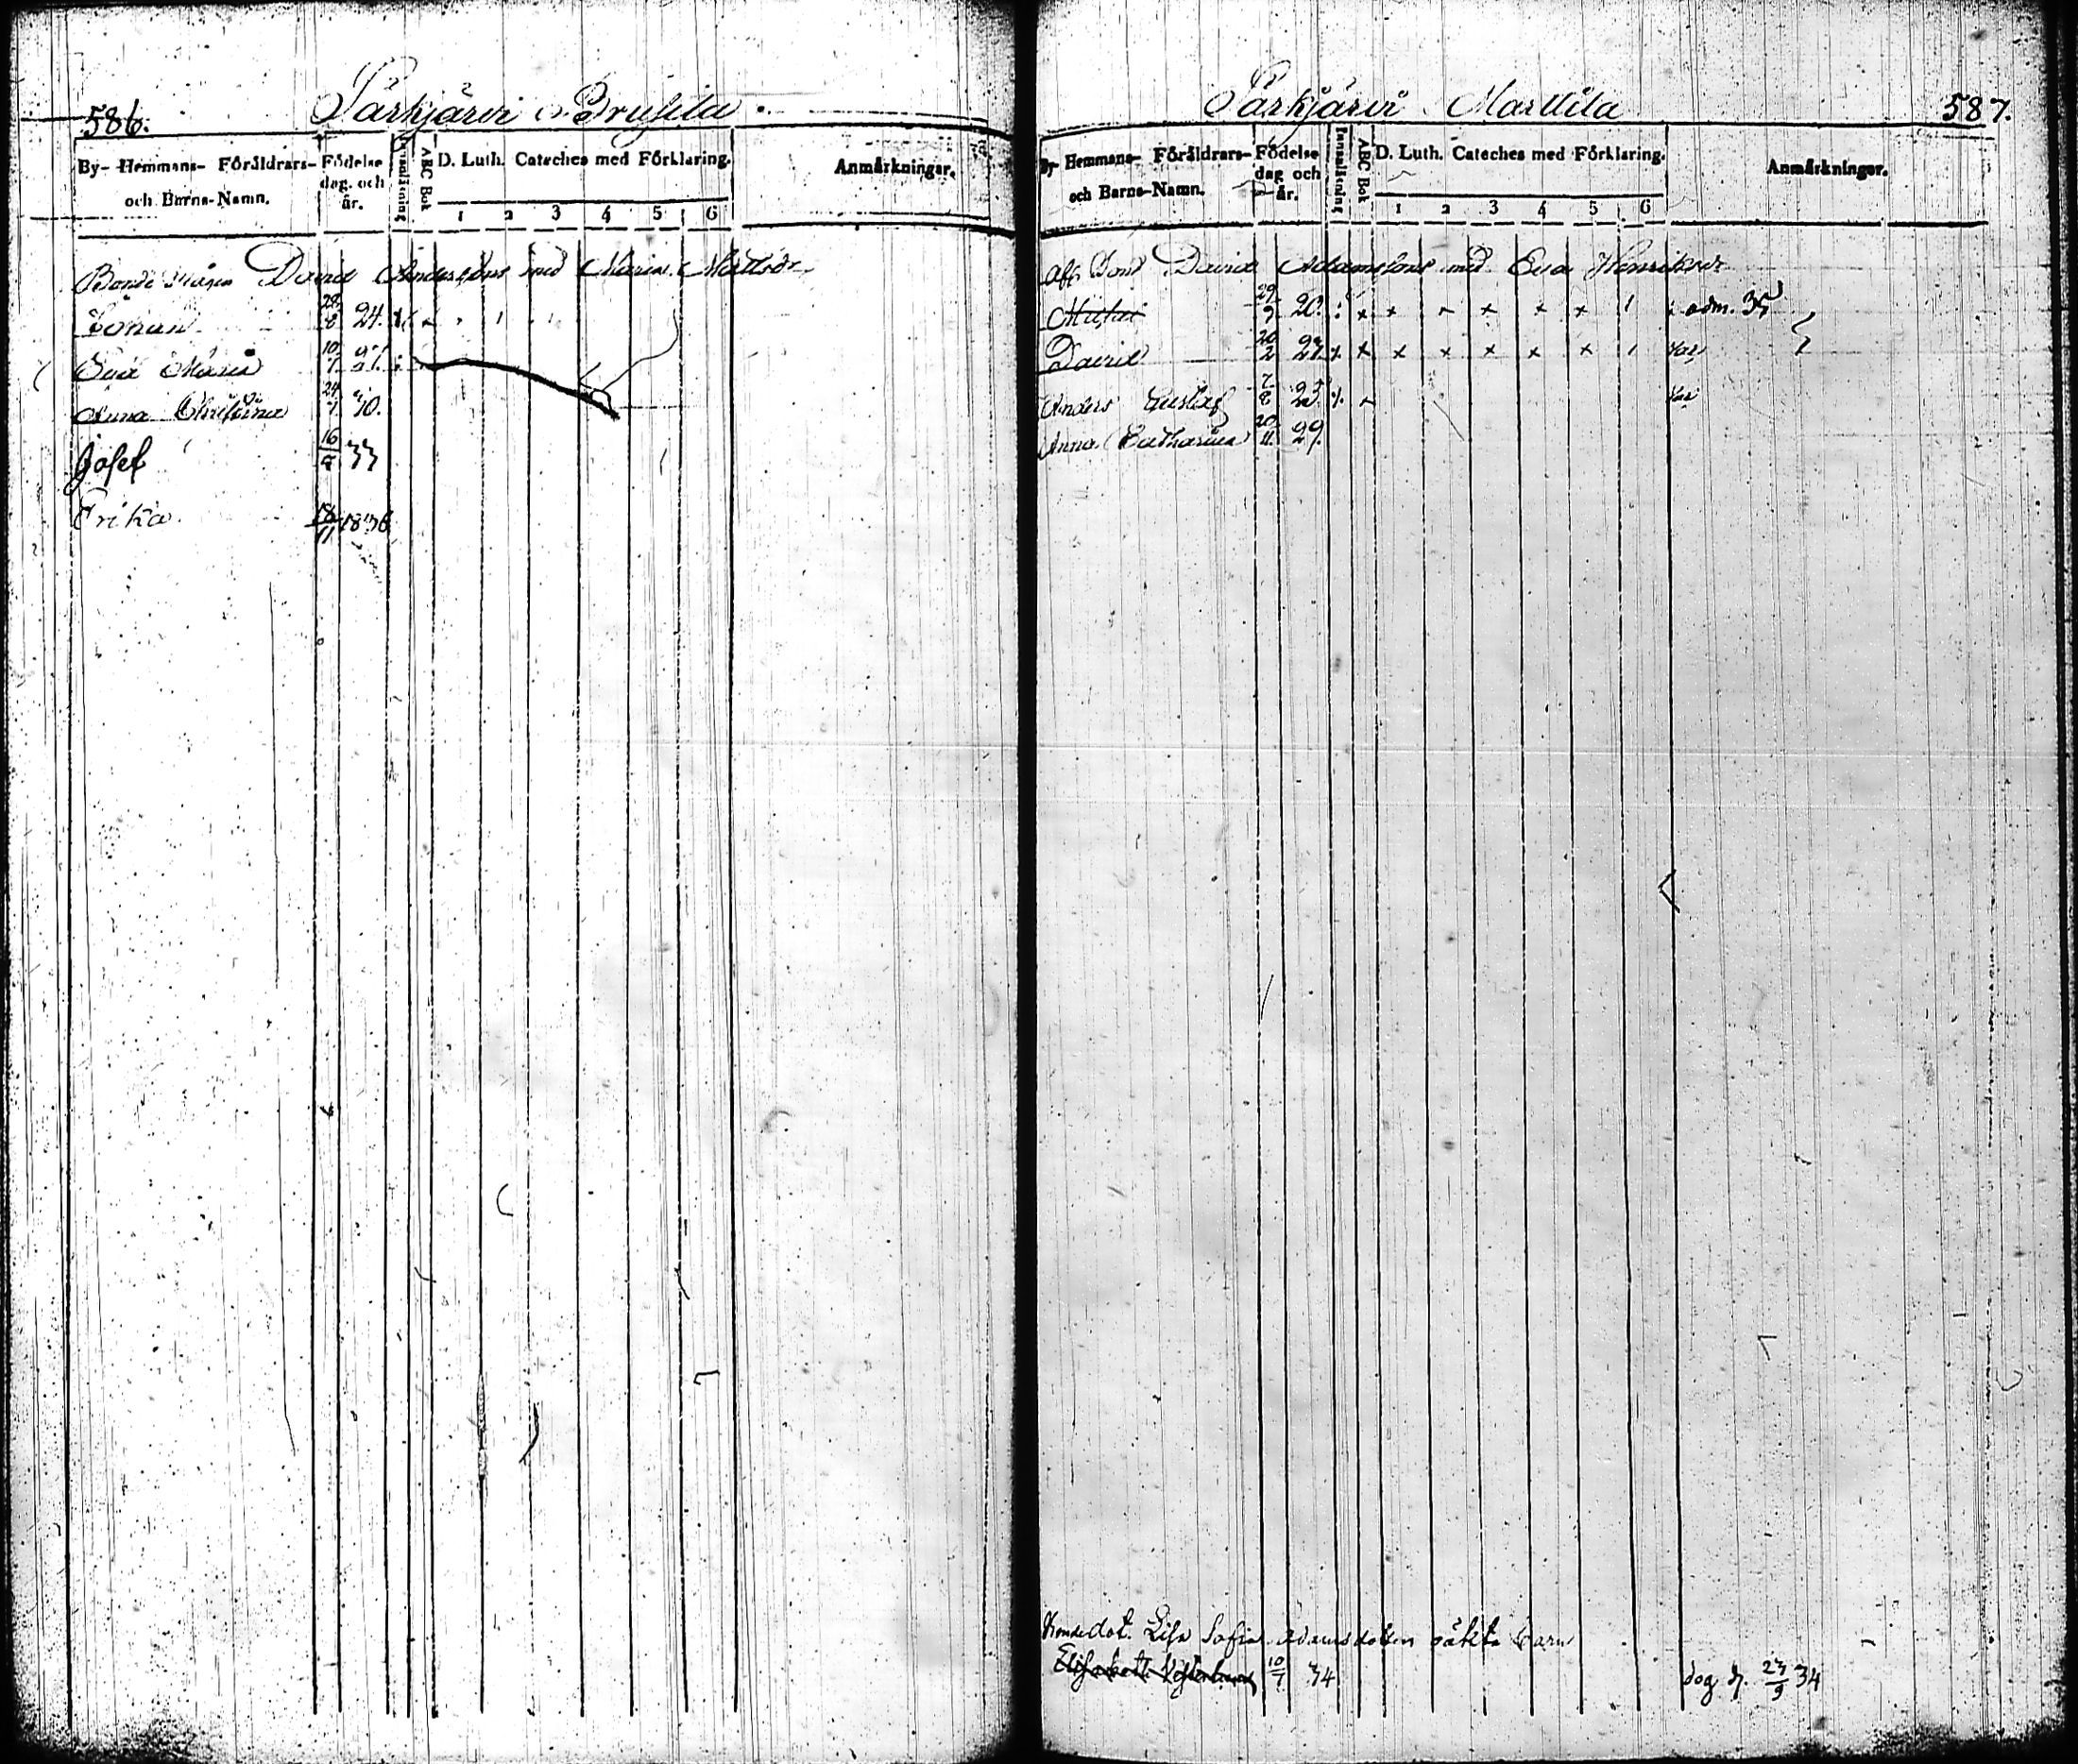 586.
Särkjärvi Prusila
By- Hemmans- Föräldrars- och Barns-Namn.
Födelse dag. och år.
Innanläsning
ABC Bok
D. Luth. Cateches med Förklaring.
1 2 3 4 5 6
Anmärkningar.
Bonde David Anderssons med Maria Mattsdr
Johan 28/8 24.
Eva Maria
Anna Christina 30.
Josef 16 33
Erika 18/11 1836
Särkjärvi Marttila
587.
By- Hemmans- Föräldrars- och Barns-Namn.
Födelse dag och år.
Innanläsning
ABC Bok
D. Luth. Cateches med Förklaring.
1 2 3 4 5 6
Anmärkningar.
Afl. Bond David Adamssons med Eva Henriksdr
29/9 20. adm. 35
David 20/2
Anders Gustaf
Anna Catharina 20/11 29.
Bondedot. Lisa Sofia Adamsdotters oäkta barn
Elisabeth 10/7 34 dog d. 23/9 34